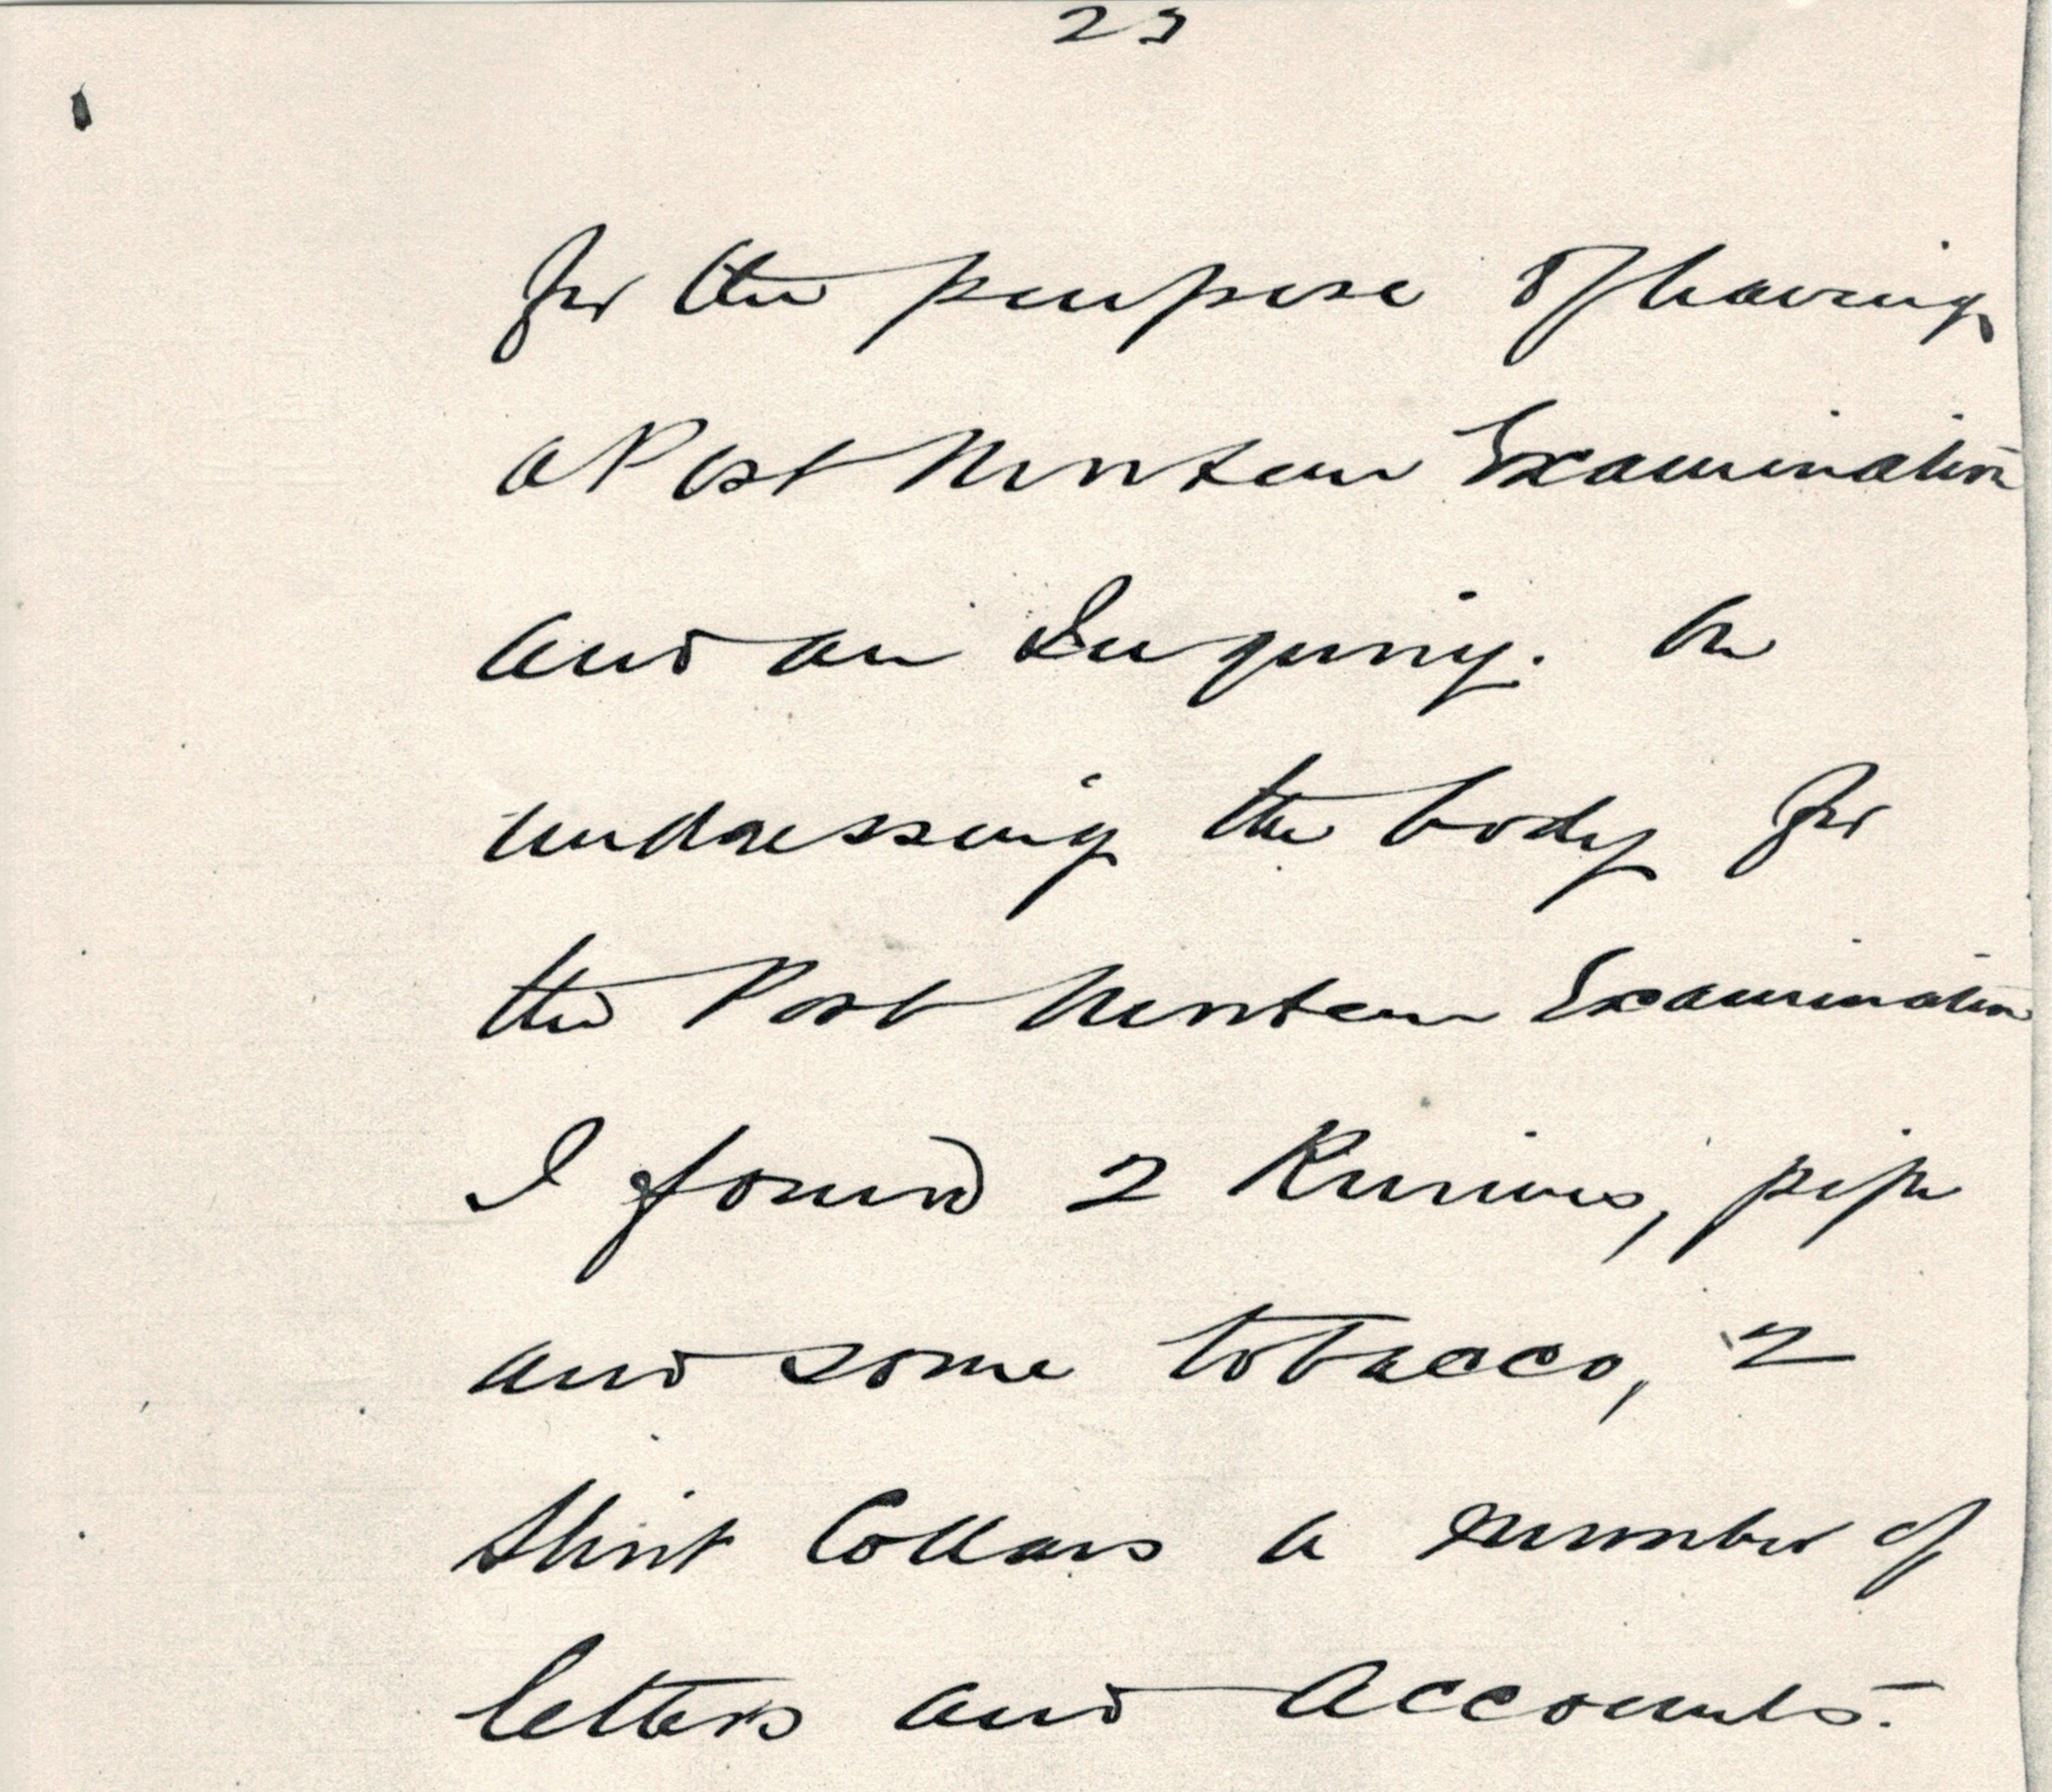 23
for the purpose of having
a Post Mortem Examination
and an Inquiry. On
undressing the body for
the Post Mortem Examination
I found 2 Knives, pipe
and some tobacco, 2
Shirt Collars a number of
letters and accounts.